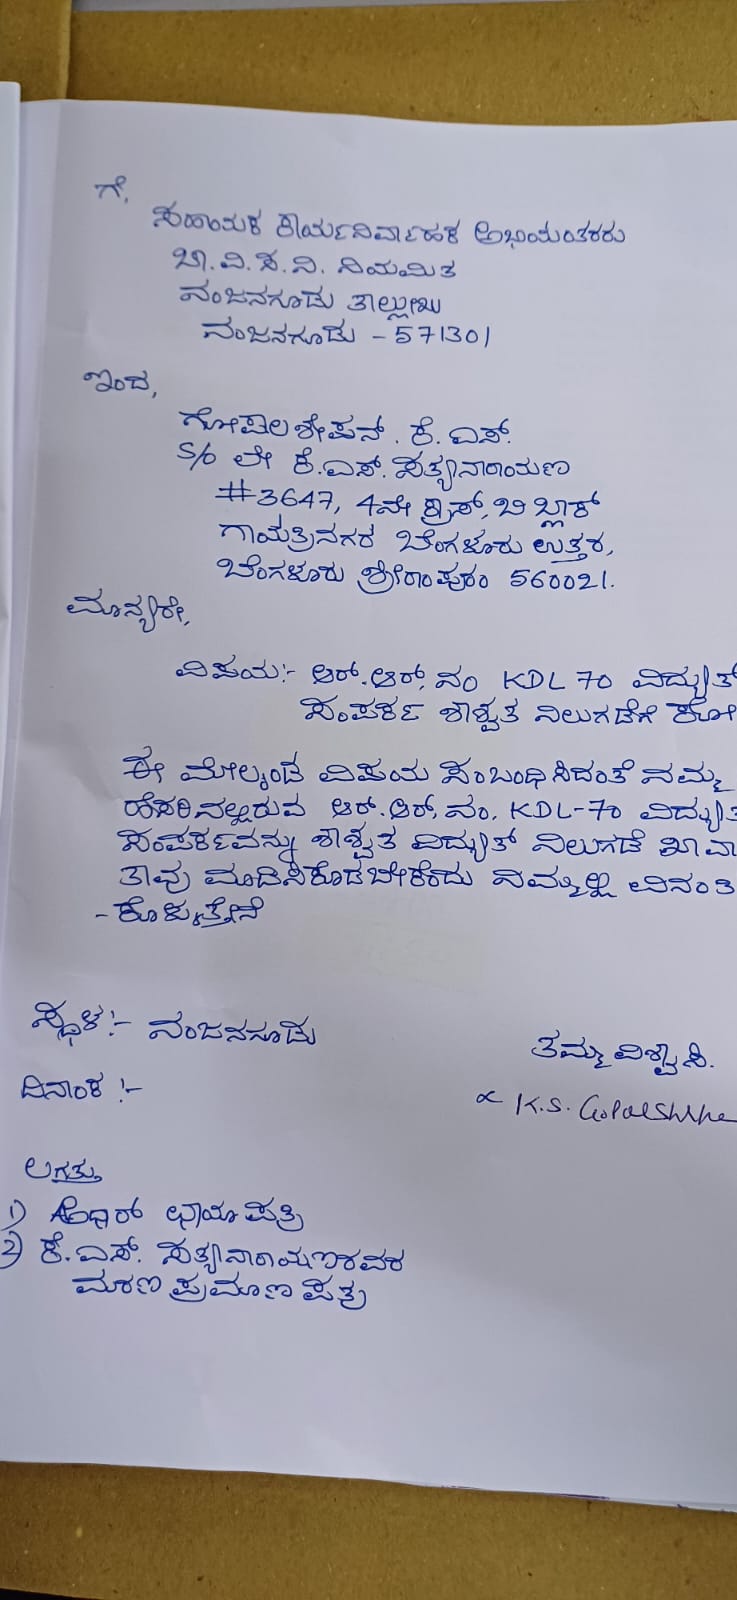 ಗೆ,
ಸಹಾಯಕ ಕಾರ್ಯನಿರ್ವಾಹಕ ಅಭಿಯಂತರರು
ಚಾ.ವಿ.ಸ.ನಿ. ನಿಯಮಿತ
ನಂಜನಗೂಡು ತಾಲ್ಲೂಕು
ನಂಜನಗೂಡು - 571301
ಇಂದ,
ಗೋಪಾಲಶೇಷನ್. ಕೆ.ಎಸ್.
S/o ಲೇ ಕೆ.ಎಸ್. ಸತ್ಯನಾರಾಯಣ
#3647, 4ನೇ ಕ್ರಾಸ್, ಬಿ ಬ್ಲಾಕ್
ಗಾಯತ್ರಿನಗರ ಬೆಂಗಳೂರು ಉತ್ತರ,
ಬೆಂಗಳೂರು ಶ್ರೀರಾಂಪುರಂ 560021.
ಮಾನ್ಯರೇ,
ವಿಷಯ:- ಆರ್.ಆರ್.ನಂ KDL 70 ವಿದ್ಯುತ್
ಸಂಪರ್ಕ ಶಾಶ್ವತ ನಿಲುಗಡೆಗೆ ಕೋ
ಈ ಮೇಲ್ಕಂಡ ವಿಷಯ ಸಂಬಂಧಿಸಿದಂತೆ ನಮ್ಮ
ಹೆಸರಿನಲ್ಲಿರುವ ಆರ್.ಆರ್.ನಂ. KDL-70 ವಿದ್ಯುತ
ಸಂಪರ್ಕವನ್ನು ಶಾಶ್ವತ ವಿದ್ಯುತ್ ನಿಲುಗಡೆ
ತಾವು ಮಾಡಿಸಿಕೊಡಬೇಕೆಂದು ನಿಮ್ಮಲ್ಲಿ ವಿನಂತಿ
-ಕೊಳ್ಳುತ್ತೇನೆ
ಸ್ಥಳ:- ನಂಜನಗೂಡು
ತಮ್ಮ ವಿಶ್ವಾಸಿ.
ದಿನಾಂಕ :-
K.S.
ಲಗತ್ತು
1) ಆಧಾರ್ ಛಾಯಾ ಪತ್ರಿ
2) ಕೆ.ಎಸ್. ಸತ್ಯನಾರಾಯಣರವರ
ಮರಣ ಪ್ರಮಾಣ ಪತ್ರ